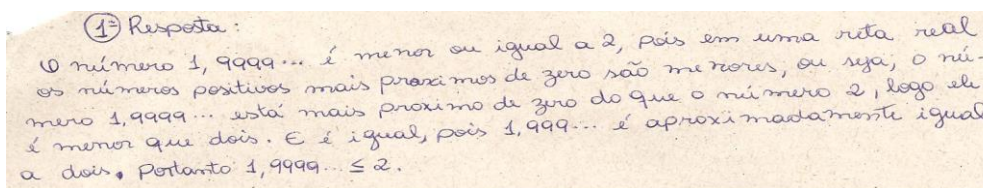 1ª Resposta:
O número 1,9999... é menor ou igual a 2, pois em uma reta real
os números positivos mais proximos de zero são menores, ou seja, o nú-
mero 1,9999... está mais proximo de zero do que o número 2, logo ele
é menor que dois. E é igual, pois 1,999... é aproximadamente igual
a dois. Portanto 1,9999... ≤ 2.